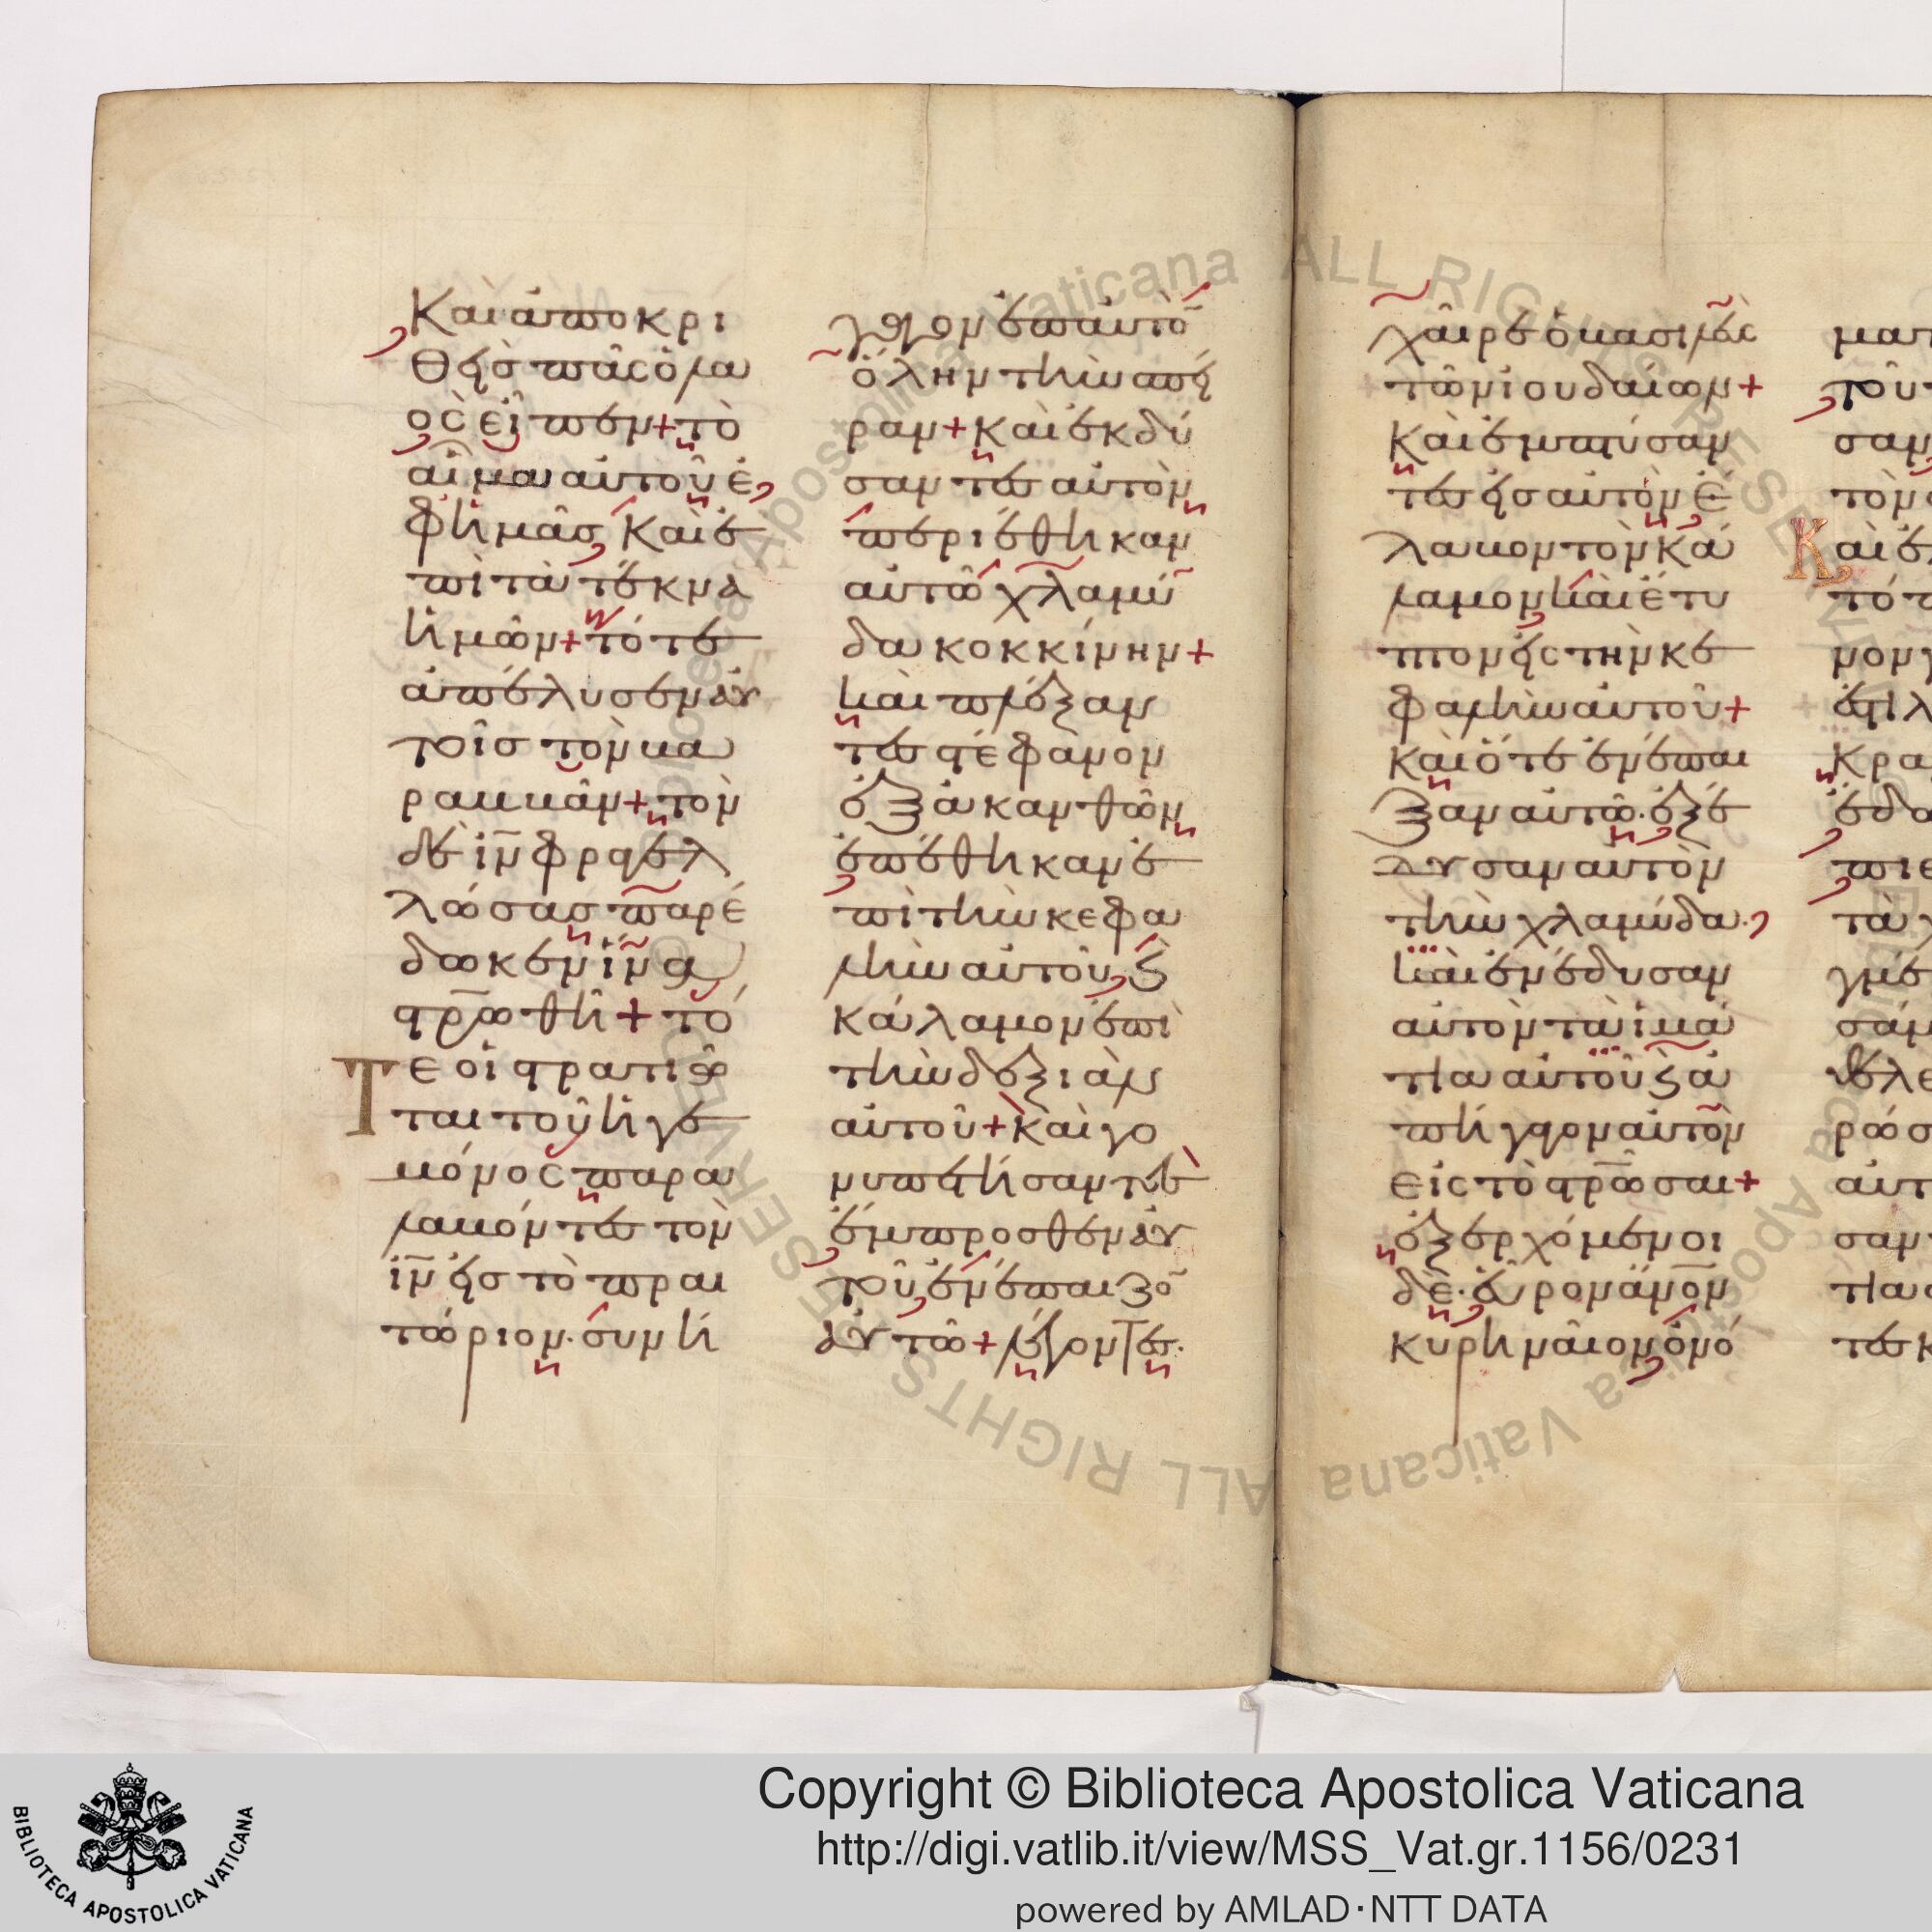 Καὶ ἀποκρι
θεὶσ πᾶς ὁ λα
ὸς εἶπεν + τὸ
αἷμα αὐτοῦ ἐ
φ ἡμᾶσ καὶ ἐ
πὶ τὰ τέκνα
ἡμῶν + τότε
ἀπέλυσεν αὐ
τοῖσ τὸν βα
ραββᾶν + τὸν
δὲ ι̅ν̅ φραγελ
λώσασ παρέ
δωκεν ἵνα
στ̅ρ̅ωθῆ + τό
Τε οἱ στρατιῶ
ται τοῦ ἡγε
μόνος παρα
λαβόντεσ τὸν
ι̅ν̅ εἰσ τὸ πραι
τώριον· συνή
γαγον ἐπ αὐτὸ
ὅλην τὴν σπεῖ
ραν + καὶ ἐκδύ
σαντεσ αὐτὸν
περιέθηκαν
αὐτῶ χλαμύ
δα κοκκίνην +
καὶ πλέξαν
τεσ στέφανον
ἐξ ἀκανθῶν
ἐπέθηκαν ἐ
πὶ τὴν κεφα
λὴν αὐτοῦ ϗ
κάλαμον ἐπὶ
τὴν δεξιὰν
αὐτοῦ + καὶ γο
νυπετήσαντεσ
ἔμπροσθεν αὐ
τοῦ ἐνέπαιζο
αὐτῶ + λέγοντεσ·
χαῖρε ὁ βασιλεὺς
τῶν ἰουδαίων +
Καὶ ἐμπτύσαν
τεσ εἰσ αὐτὸν ἔ
λαβον τὸν κά
λαμον καὶ ἔτυ
πτον εἰς τὴν κε
φαλὴν αὐτοῦ +
καὶ ὅτε ἐνέπαι
ξαν αὐτῶ· ἐξέ
δυσαν αὐτὸν
τὴν χλαμύδα·
καὶ ἐνέδυσαν
αὐτὸν τὰ ἱμά
τια αὐτοῦ ϗ ἀ
πήγαγον αὐτὸν
εἰς τὸ στ̅ρ̅ῶσαι +
ἐξερχόμενοι
δὲ· εὗρον ἄν̅ο̅ν
κυρηναῖον ὀνό
ματ
τοῦτ
σαν
τὸν
Καὶ ἐ
τόπ
κρα
ἔδω
πιε
τὰ χ
γμέ
σάμ
βλε
ρώσ
αὐτ
σαν
τια
τεσ κ
Copyright © Biblioteca Apostolica Vaticana
http://digi.vatlib.it/view/MSS_Vat.gr.1156/0231
powered by AMLAD·NTT DATA
BIBLIOTECA APOSTOLICA VATICANA